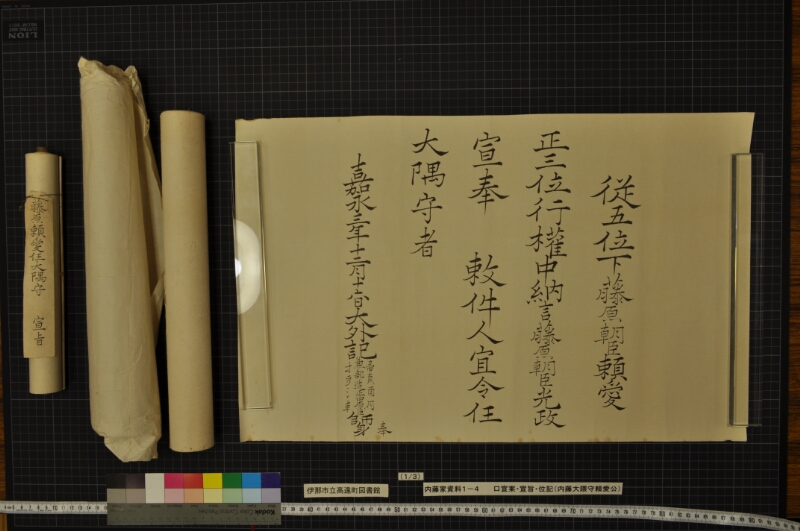 從五位下藤原朝臣頼愛
正三位行權中納言藤原朝臣光政
宣奉　敕件人宜令任
大隅守者
嘉永三年十二月十六日大外記
師身
奉
藤原頼愛任大隅守　宣旨
(1/3)
伊那市立高遠町図書館
内藤家資料1-4　口宣案・宣旨・位記(内藤大隅守頼愛公)
LION
Kodak